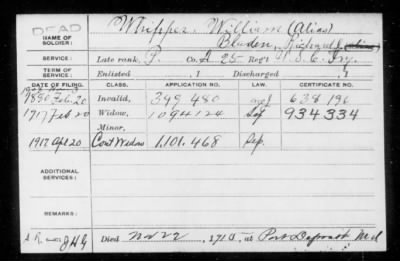 DEAD
NAME OF SOLDIER:
Whipper, William (Alias)
Bladen, Richard J. (alias)
SERVICE:
Late rank, P. Co. I, 25 Reg't U.S.C. Inf.
TERM OF SERVICE:
Enlisted , 1 Discharged , 1
DATE OF FILING. CLASS. APPLICATION NO. LAW. CERTIFICATE NO.
Feb. 20 Invalid, 399 480 638 196
1917 Feb 20 Widow, 1094124 934334
Minor,
1917 Apl 20 Cont Widow 1,101,468
ADDITIONAL SERVICES:
REMARKS:
Died Nov 22, 1910, at Port Deposit Md